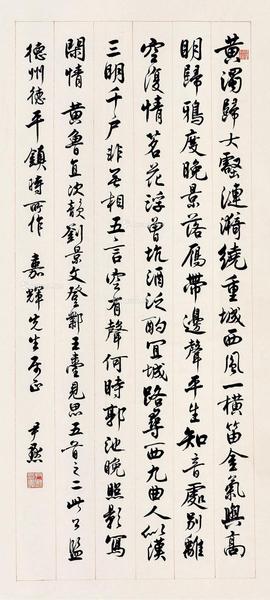 黄濁歸大壑漣漪繞重城西風一橫笛金氣與高
明歸鴉度晚景落雁帶邊聲平生知音處別離
空復情茗花浮曾坑酒泛酌宜城路尋西九曲人似漢
三明千户非無相五言空有聲何時郭池晚照影寫
閑情 黄魯直次韻劉景文登鄴王臺見思五首之二此公監
德州德平鎮時所作 嘉輝先生屬正 尹默